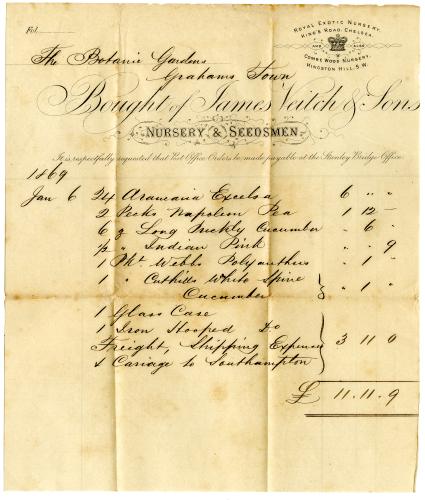 Fol.
ROYAL EXOTIC NURSERY,
KING'S ROAD, CHELSEA,
AND ALSO
COMBE WOOD NURSERY,
KINGSTON HILL, S.W.
The Botanic Gardens
Grahams Town
Bought of James Veitch & Sons
NURSERY & SEEDSMEN.
It is respectfully requested that Post Office Orders be made payable at the Stanley Bridge Office
1869
Jan 6 24 Araucaria Excelsa 6 " "
2 Pecks Napoleon Pea 1 12 –
6 z Long Prickly Cucumber " 6 "
½ " Indian Pink " " 9
1 Pkt Webbs Polyanthus " 1 "
1 " Cuthills White Spine
Cucumber " 1 "
1 Glass Case
1 Iron Hooped Do
Freight, Shipping Expenses 3 11 0
& Cariage to Southampton
£ 11.11.9